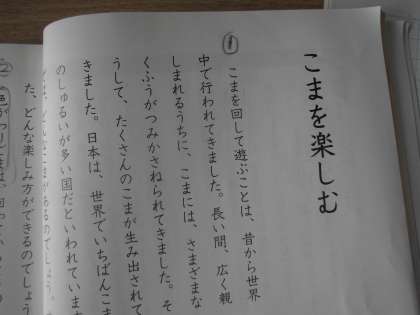 こまを楽しむ
①
こまを回して遊ぶことは、昔から世界
中で行われてきました。長い間、広く親
しまれるうちに、こまには、さまざまな
くふうがつみかさねられてきました。そ
うして、たくさんのこまが生み出されて
きました。日本は、世界でいちばんこま
のしゅるいが多い国だといわれていま
どんなこまがあるのでしょう
た、どんな楽しみ方ができるのでしょう
②
色がわりごまは、回っている